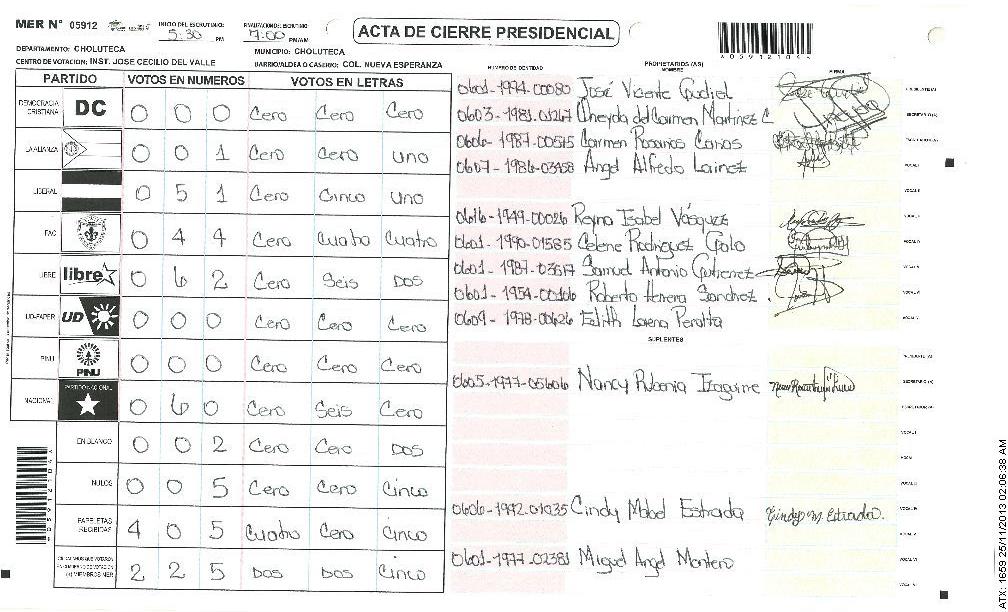 MER N° 05912
INICIO DEL ESCRUTINIO: 5:30 PM
FINALIZACION DEL ESCRUTINIO: 7:00 PM/AM
ACTA DE CIERRE PRESIDENCIAL
DEPARTAMENTO: CHOLUTECA
MUNICIPIO: CHOLUTECA
CENTRO DE VOTACION: INST. JOSE CECILIO DEL VALLE
BARRIO/ALDEA O CASERIO: COL. NUEVA ESPERANZA
PARTIDO VOTOS EN NUMEROS VOTOS EN LETRAS
DEMOCRACIA CRISTIANA DC 0 0 0 Cero Cero Cero
LA ALIANZA 0 0 1 Cero Cero uno
LIBERAL 0 5 1 Cero Cinco uno
FAC 0 4 4 Cero Cuatro Cuatro
LIBRE libre 0 6 2 Cero Seis Dos
UD-FAPER UD 0 0 0 Cero Cero Cero
PINU PINU 0 0 0 Cero Cero Cero
NACIONAL PARTIDO NACIONAL 0 6 0 Cero Seis Cero
EN BLANCO 0 0 2 Cero Cero Dos
NULOS 0 0 5 Cero Cero Cinco
PAPELETAS RECIBIDAS 4 0 5 Cuatro Cero Cinco
2 2 5 Dos Dos Cinco
NUMERO DE IDENTIDAD
PROPIETARIOS (AS)
NOMBRE
FIRMA
0601-1994-00080 José Vicente Gudiel
0603-1981-01267 Martinez C
0606-1987-00515 Carmen
0607-1986-03458 Angel Alfredo Lainez
0616-1949-00026 Reyna Isabel Vásquez
0601-1990-01585 Celene Rodriguez
0601-1987-03617 Samuel Antonio Gutierrez
0601-1954-00106 Roberto Herrera Sanchez.
0609-1978-00626 Edith Lorena Peralta
SUPLENTES
0605-1977-05606 Nancy Izaguirre
0606-1992-01035 Cindy Mabel Estrada Cindy M. Estrada.
0601-1977-02381 Miguel Angel Montero
ATX: 1659 25/11/2013 02:06:38 AM